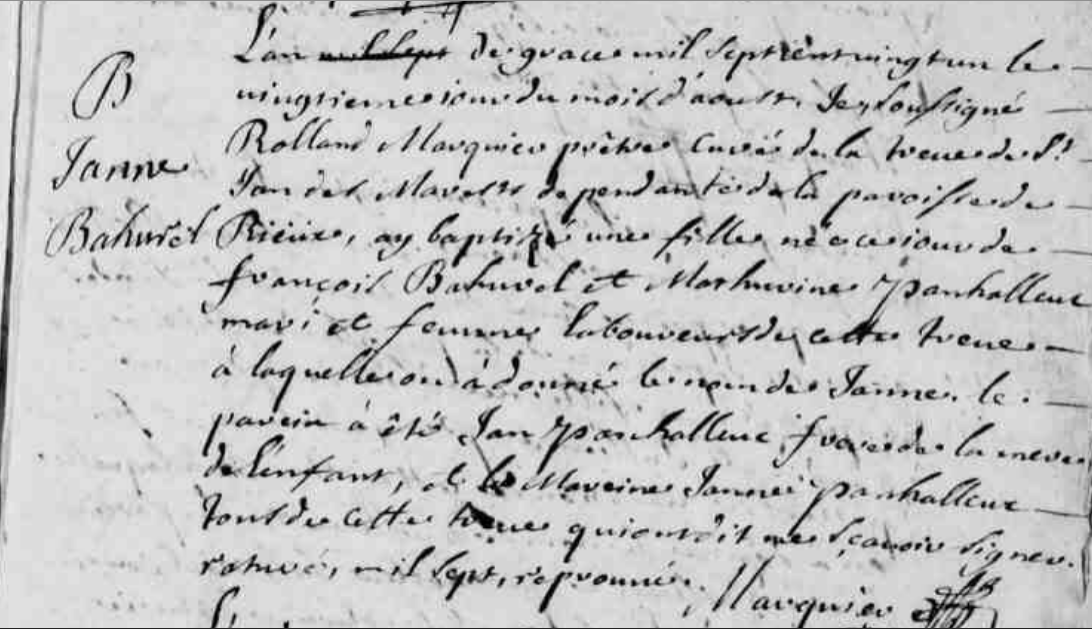 B
Janne
Bahurel
L'an mil sept de grace mil sept cent vingt un le
vingtieme iour du mois d'aoust, Je soussigné
Rolland Marquier prêtre Curé de la treve de St
Jan des Marests dependante de la paroisse de
Rieux, ay baptizé une fille née ce iour de
françois Bahurel et Mathurine panhalleuc
mari et femme laboureurs de cette treve
à laquelle on à donné le nom de Janne. le
parein à été Jan panhalleuc frere de la mere
de l'enfant, et la Mareine Janne panhalleuc
tous de cette treve qui ont dit ne sçavoir signer.
raturé, mil sept, reprouvé.
Marquier